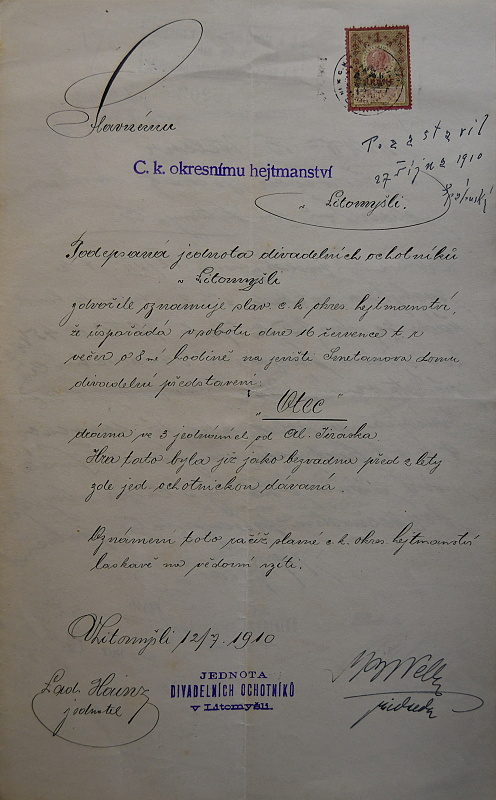 Slavnému
C. k. okresnímu hejtmanství
v Litomyšli.
27 října 1910
Podepsaná jednota divadelních ochotníků
v Litomyšli
zdvořile oznamuje slav. c. k. okres. hejtmanství,
že uspořádá v sobotu dne 16 července t. r.
večer o 8mé hodině na jevišti Smetanova domu
divadelní představení
"Otec"
drama ve 3 jednáních od Al. Jiráska.
Hra tato byla již jako bezvadna před 2 lety
zde jed. ochotnickou dávána.
Oznámení toto račiž slavné c. k. okres. hejtmanství
laskavě na vědomí vzíti.
V Litomyšli 12/7 1910
Lad. Hainz
jednatel
JEDNOTA
DIVADELNÍCH OCHOTNÍKŮ
v Litomyšli.
předseda